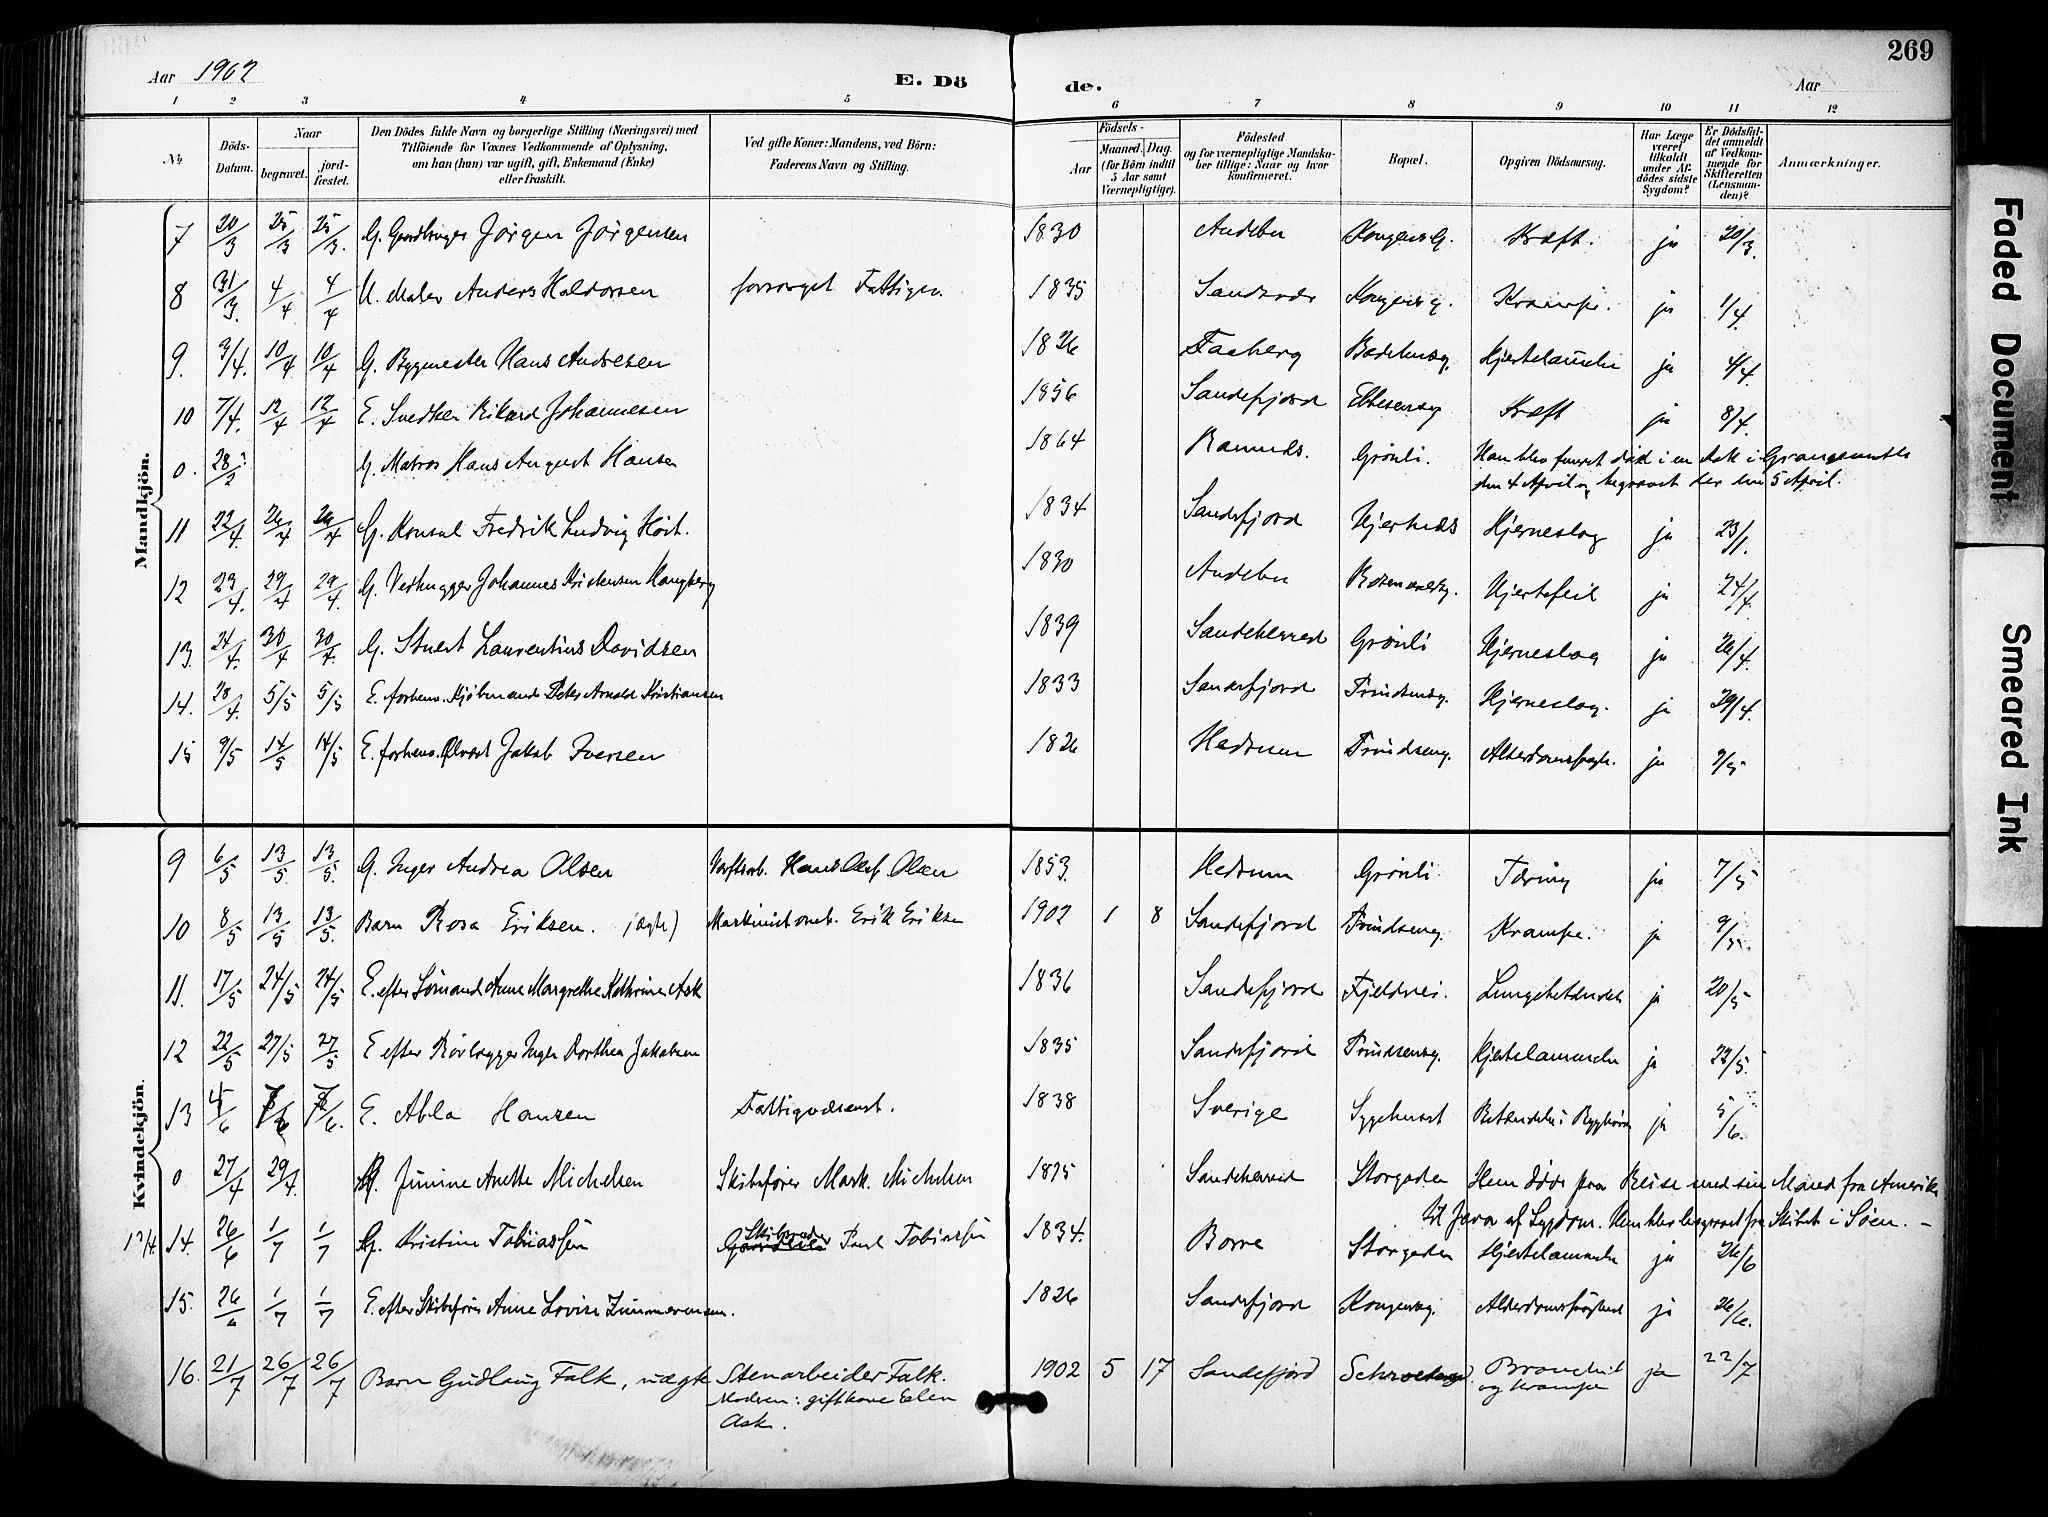 269
Aar 1902 E. Dö de. Aar
1 2 3 4 5 6 7 8 9 10 11 12
No
Döds-Datum.
Naar
begravet.
jord-fæstet.
Den Dödes fulde Navn og borgerlige Stilling (Næringsvei) med
Tilföiende for Voxnes Vedkommende af Oplysning,
om han (hun) var ugift, gift, Enkemand (Enke)
eller fraskilt.
Ved gifte Koner: Mandens, ved Börn:
Faderens Navn og Stilling.
Födsels-
Aar
Maaned. Dag.
(for Börn indtil
5 Aar samt
Værnepligtige).
Födested
og for værnepligtige Mandska-
ber tillige: Naar og hvor
konfirmeret.
Bopæl.
Opgiven Dödsaarsag.
Har Læge
været
tilkaldt
under Af-
dödes sidste
Sygdom?
Er Dödsfal-
det anmeldt
af Vedkom-
mende for
Skifteretten
(Lensman-
den)?
Anmærkninger.
Mandkjön.
7 20/3 25/3 25/3. G. Gaardbruger Jörgen Jörgensen 1830 Andebu Kongensg. Kræft. ja 20/3.
8 31/3. 4/4 4/4 U. Maler Anders Haldorsen forsörget Fattigv. 1835 Kongensg. Krampe. ja 1/4.
9. 3/4. 10/4 10/4 G. Bygmester Hans Andresen 1826 Faaberg Hjertelammelse ja 4/4.
10 7/4. 12/4 12/4 E. Rikard Johannesen 1856 Sandefjord Kræft ja 8/4.
0. 28/2 ? G. Matros Hans August Hansen 1864 Grönli. Han blev funnet död i en Dok i Grangemouth
den 4 April og begravet der den 5 April.
11 22/4. 26/4 26/4 G. Konsul Fredrik Ludvig Höst. 1834 Sandefjord Hjerneslag ja
12 23/4. 29/4 29/4. G. Vedhugger Johannes Kristensen Haugberg 1830 Andebu Hjertefeil ja 24/4.
13. 24/4. 30/4 30/4. G. Stuert Laurentius Davidsen 1839 Sandeherred Grönli Hjerneslag ja 26/4.
14. 28/4. 5/5 5/5 E. forhenv. Kjöbmand Peter Arnold Kristiansen 1833 Sandefjord Prindsensg. Hjerneslag. ja 29/4.
15 9/5 14/5 14/5 E. forhenv. Jakob Iversen 1826 Hedrum Prindseng. ja 9/5
Kvindekjön.
9 6/5 13/5. 13/5. G. Inger Andrea Olsen Verftsarb. Hans Olaf Olsen 1853. Hedrum Grönli Tæring ja 7/5
10 8/5 13/5 13/5. Barn Rosa Eriksen. (ægte) Maskinist Erik Eriksen 1902 1 8 Sandefjord Prindseng. Krampe. ja 9/5.
11. 17/5 24/5 24/5 E. efter Sömand Anne Margrethe Kathrine Ask 1836 Sandefjord Fjeldvei. Lungebetændelse ja 20/5
12 22/5 27/5 27/5 E efter Inger Dorthea Jakobsen 1835 Sandefjord Prindsensg. Hjertelammelse ja 22/5.
13 4/6 7/6 7/6. E. Abla Hansen Fattigvæsenet. 1838 Sverige Sygehuset Betændelse i ja 5/6.
0 27/4 29/4. G. Junine Anette Michelsen Skibsförer Mark. Michelsen 1875 Sandeherred Storgaden Hun döde paa Reise med sin Mand fra Amerika
til Java af Sygdom. Hun blev begravet fra Skibet i Söen. –
14. 26/6 1/7 1/7 G. Kristine Tobiassen Skibsreder Paul Tobiassen 1834. Borre Storgaden Hjertelammelse ja 26/6
15. 26/6 1/7 1/7 E. efter Skibsförer Anne Lovise Zimmermann. 1826 Sandefjord Kongensg. Alderdomssvaghed ja 26/6.
16. 21/7 26/7 26/7 Barn Gudlaug Falk, uægte Stenarbeider Falk.
Moderen: gift kone Ellen
Ask.
1902 5 17 Sandefjord Bronchit
og krampe ja 22/7
Faded Document
Smeared Ink